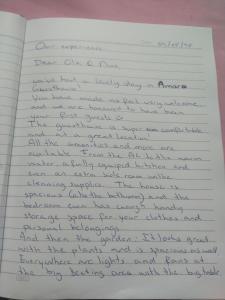 Our experience
Dear Ola & 
we've had a lovely stay in Amara
Guesthouse!
You have made us feel very welcome
and we are honoured to have been
your first guests
The guesthouse is super comfortable
and at a great location!
All the amenities and more are
available. From the AC to the warm
water, a fully equiped kitchen and
even an extra bedroom with
cleaning supplies. The house is
spacious (also the bathroom) and the
bedroom even has handy
storage space for your clothes and
personal belongings
And then the garden! It looks great
with the plants and is spacious as well
Everywhere are lights and fans at
the big seating area with the big table